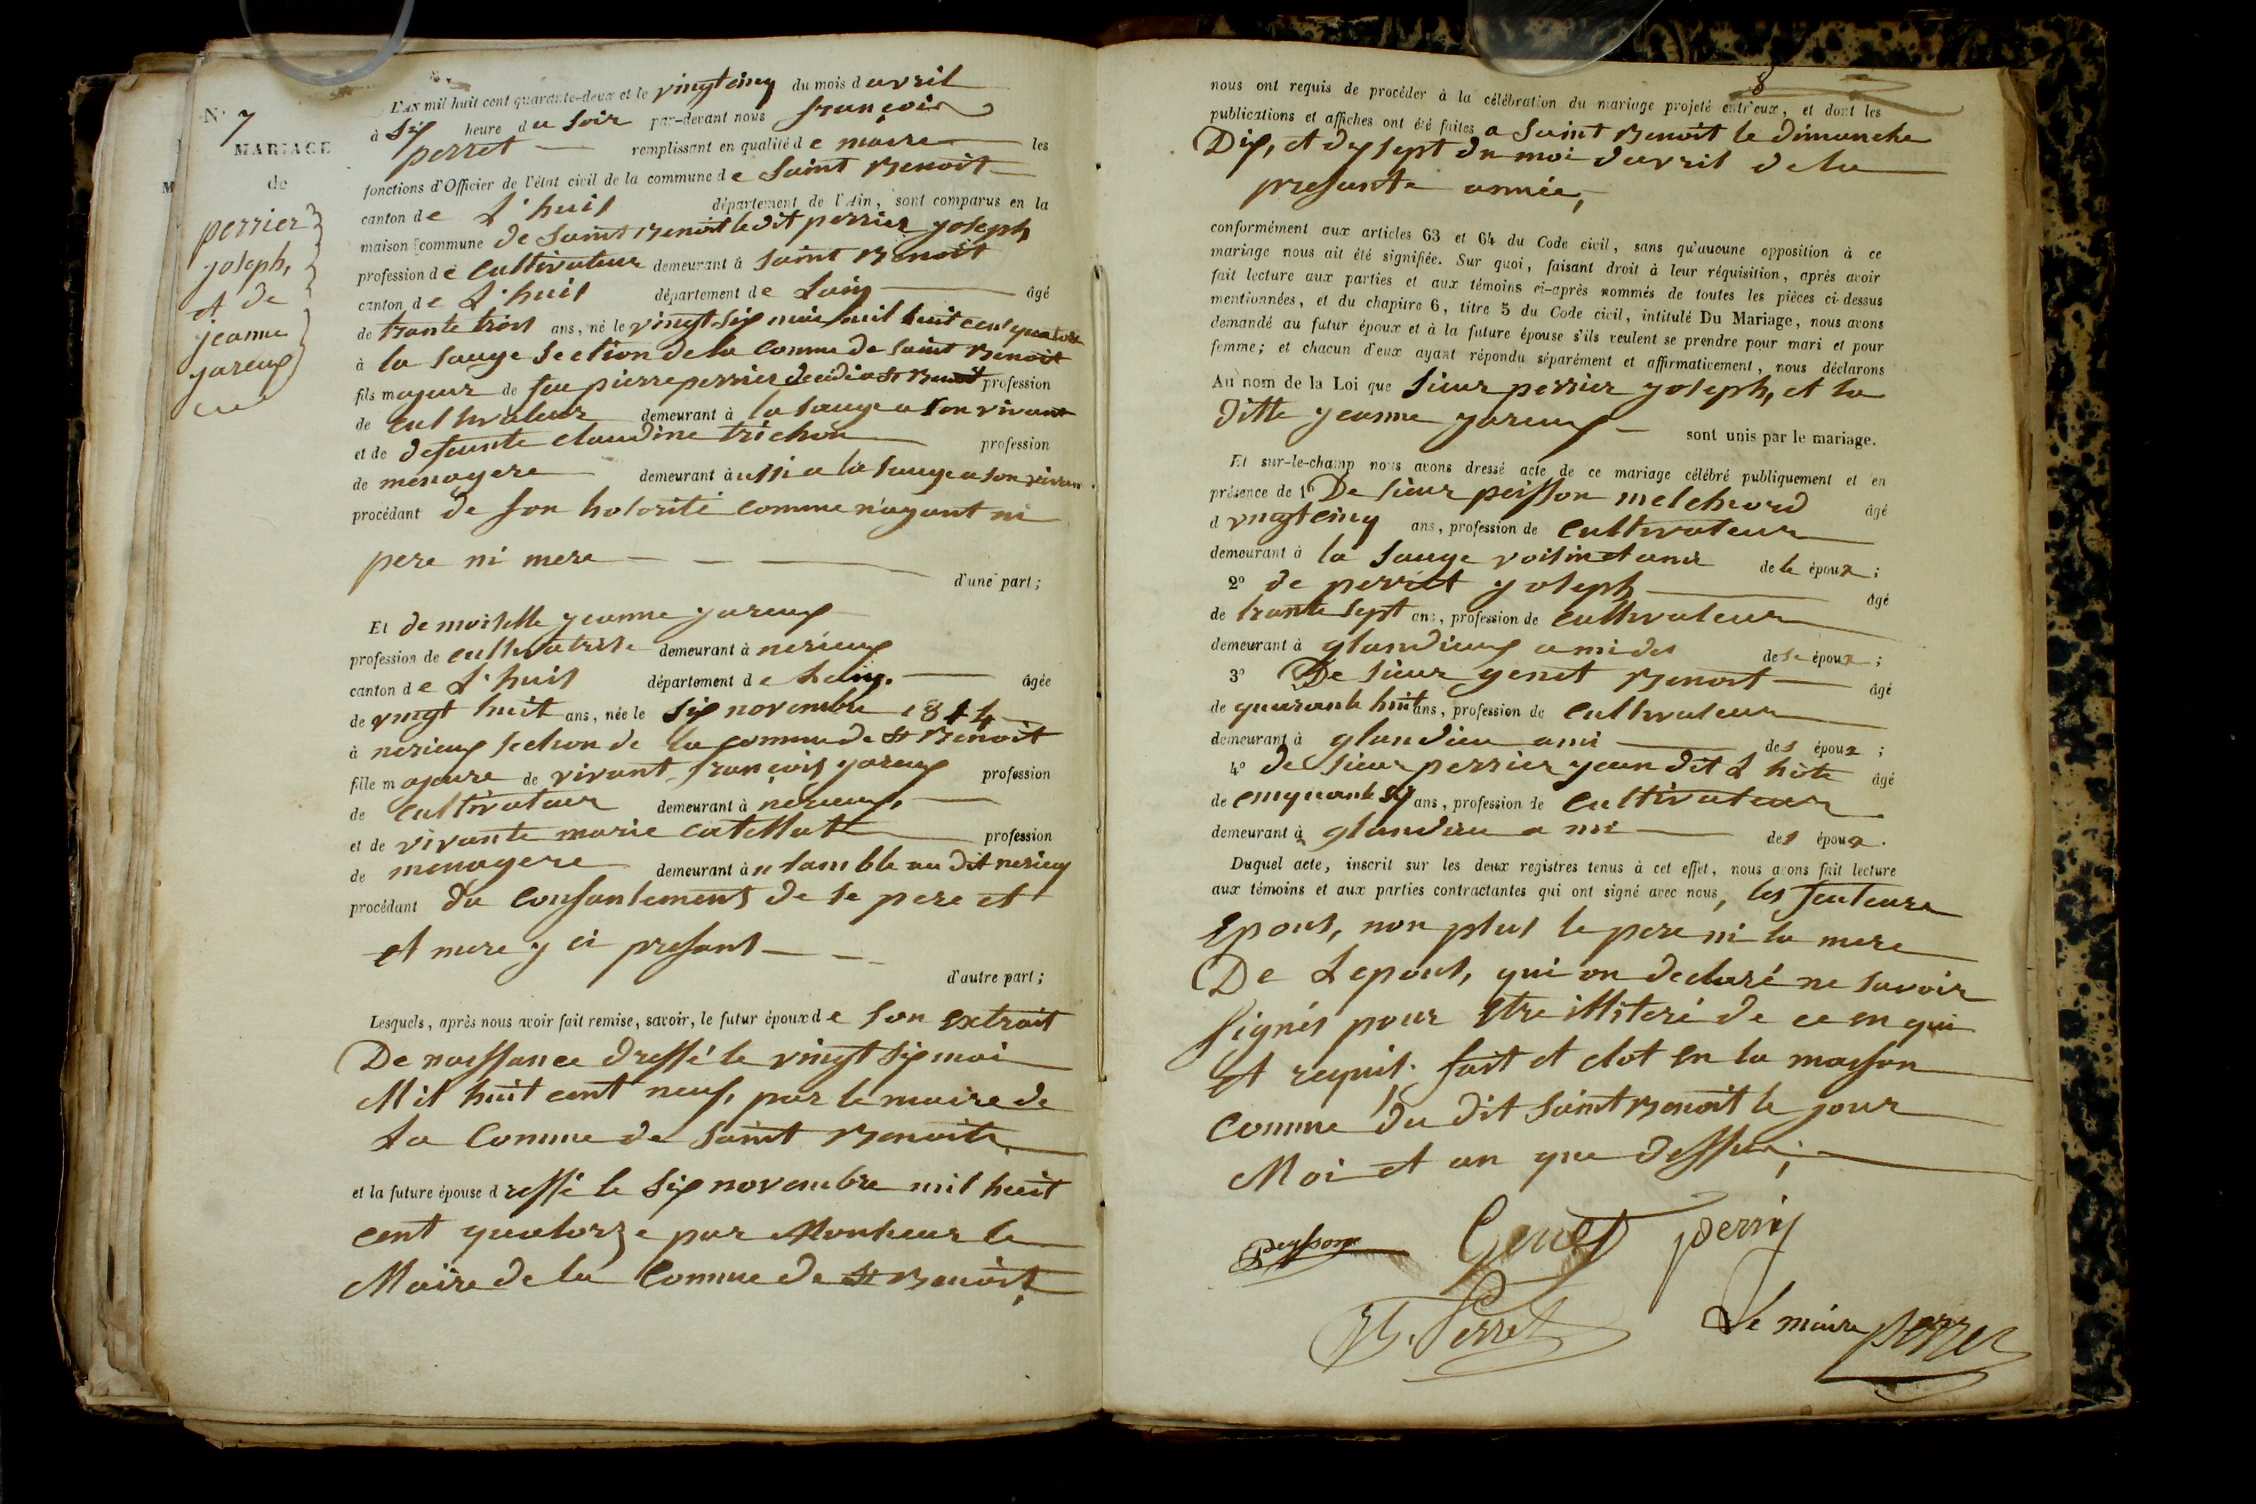 N° 7
MARIAGE
de
perrier
joseph,
et de
jeanne
jareux
L'AN mil huit cent quarante-deux et le vingt cinq du mois d avril
à six heure du soir par-devant nous françois
perret remplissant en qualité de maire les
fonctions d'Officier de l'état civil de la commune de Saint Benoit
canton de L'huis département de l'Ain, sont comparus en la
maison commune de Saint Benoit le dit perrier joseph
profession de Cultivateur demeurant à Saint Benoit
canton de L'huis département de Lain âgé
de trante trois ans, né le vingt six mai mil huit cent quatorze
à la sauge section de la comune de Saint Benoit
fils majeur de feu pierre perrier décédé a St Benoit profession
de cultivateur demeurant à la sauge a son vivant
et de defeunte claudine trichon profession
de menagere demeurant à ussi a la sauge a son vivan
procédant de son hotorité comme n'ayant ni
pere ni mere
d'une part;
Et demoiselle jeanne jareux
profession de cultivatrise demeurant à nerieux
canton de L'huis département de Lain. âgée
de vingt huit ans, née le six novembre 1814
à nerieux section de la comune de St Benoit
fille majeure de vivant françois jareux profession
de Cultivateur demeurant à nerieux,
et de vivante marie catellat profession
de menagere demeurant à n samble au dit nerieux
procédant du consantement de se pere et
et mere y ci presant
d'autre part;
Lesquels, après nous avoir fait remise, savoir, le futur époux de son extrait
De naissance dressé le vingt six mai
Mil huit cent neuf, par le maire de
La Comune de Saint Benoite
et la future épouse dressé le six novembre mil huit
cent quatorze par Monsieur le
Maire de la Comune de St Benoist,
8
nous ont requis de procéder à la célébration du mariage projeté entr'eux, et dont les
publications et affiches ont été faites a Saint Benoit le dimanche
Dix, et dix sept du moi davril de la
presante année,
conformément aux articles 63 et 64 du Code civil, sans qu'aucune opposition à ce
mariage nous ait été signifiée. Sur quoi, faisant droit à leur réquisition, après avoir
fait lecture aux parties et aux témoins ci-après nommés de toutes les pièces ci-dessus
mentionnées, et du chapitre 6, titre 5 du Code civil, intitulé Du Mariage, nous avons
demandé au futur époux et à la future épouse s'ils veulent se prendre pour mari et pour
femme; et chacun d'eux ayant répondu séparément et affirmativement, nous déclarons
Au nom de la Loi que Sieur perrier joseph, et la
ditte jeanne jareux sont unis par le mariage.
Et sur-le-champ nous avons dressé acte de ce mariage célébré publiquement et en
présence de 1° De sieur peisson melchiord âgé
d vingt cinq ans, profession de cultivateur
demeurant à la sauge voisin et ami de le époux;
2° de perret joseph âgé
de trante sept ans, profession de cultivateur
demeurant à glandieux ami des de se époux;
3° De sieur genet Benoit âgé
de quarante huit ans, profession de cultivateur
demeurant à glandieu ami des époux;
4° de sieur perrier jean dit L'hôte âgé
de cinquante six ans, profession de cultivateur
demeurant à glandieu ami des époux.
Duquel acte, inscrit sur les deux registres tenus à cet effet, nous avons fait lecture
aux témoins et aux parties contractantes qui ont signé avec nous, les feuteure
Epous, non plus le pere ni la mere
De Lepous, qui on declaré ne savoir
signés pour etre illiteré de ce en qui
et requis. fait et clot en la maison
comune du dit Saint Benoit le jour
Moi et an que dessus;
peysson Genet perrin
Jh. Perret
Le maire perret